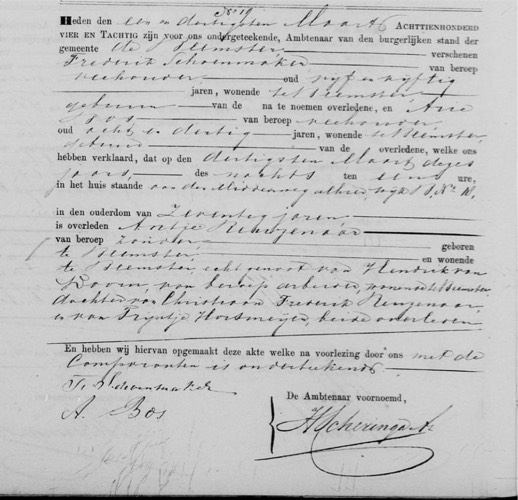 No 19
Heden den een en dertigsten Maart ACHTTIENHONDERD
VIER EN TACHTIG zijn voor ons ondergeteekende, Ambtenaar van den burgerlijken stand der
gemeente de Beemster verschenen
Frederik Schoenmaker van beroep
veehouder oud vijf en vijftig
jaren, wonende te Beemster
gebuur van de na te noemen overledene, en Arie
Bos van beroep veehouder
oud acht en dertig jaren, wonende te Beemster,
gebuur van de overledene, welke ons
hebben verklaard, dat op den dertigsten Maart dezes
jaars, des nachts ten eene ure,
in het huis staande aan den Middenweg alhier wijk No
in den ouderdom van Zeventig jaren
is overleden Antje
van beroep zonder geboren
te Beemster en wonende
te Beemster, echtgenoot van Hendrik van
van beroep arbeider, wonende te Beemster
dochter van Christiaan Frederik
en van Trijntje beide overleden
En hebben wij hiervan opgemaakt deze akte welke na voorlezing door ons met de
Comparanten is onderteekend.
Schoenmaker
A. Bos
De Ambtenaar voornoemd,
H Scheringa